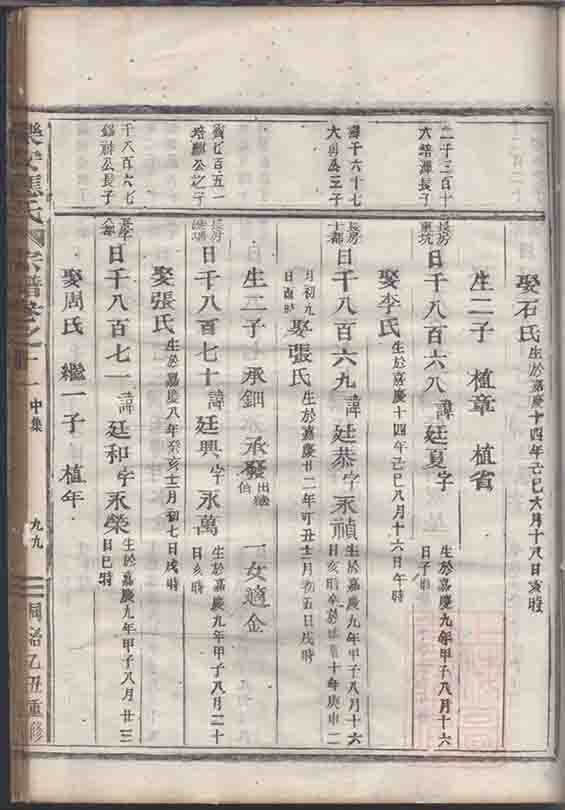 娶石氏 生於嘉慶十四年己巳六月十八日亥時
生二子 植章 植省
二千三百十
六 培澤長子
長房
東坑
日千八百六八 諱廷夏 字
生於嘉慶九年甲子八月十六
日子時
娶李氏 生於嘉慶十四年己巳八月十六日午時
千六十七
大 三子
長房
十都
日千八百六九 諱廷恭 字永禎
生於嘉慶九年甲子八月十六
日亥時 十年庚申二
月初九
日酉時
娶張氏 生於嘉慶廿二年丁丑十二月初五日戌時
生二子 承鈿 承發 出繼
伯 一女適金
七百五一
培 公之子
長房
日千八百七十 諱廷興 字永萬
生於嘉慶九年甲子八月二十
日亥時
娶張氏 生於嘉慶八年癸亥十二月初七日戌時
千八百六七
公長子
日千八百七一 諱廷和 字永榮
生於嘉慶九年甲子八月廿三
日巳時
娶周氏 繼一子 植年
樂安蔣氏宗譜卷之十一 中集 九九 同治乙丑重修